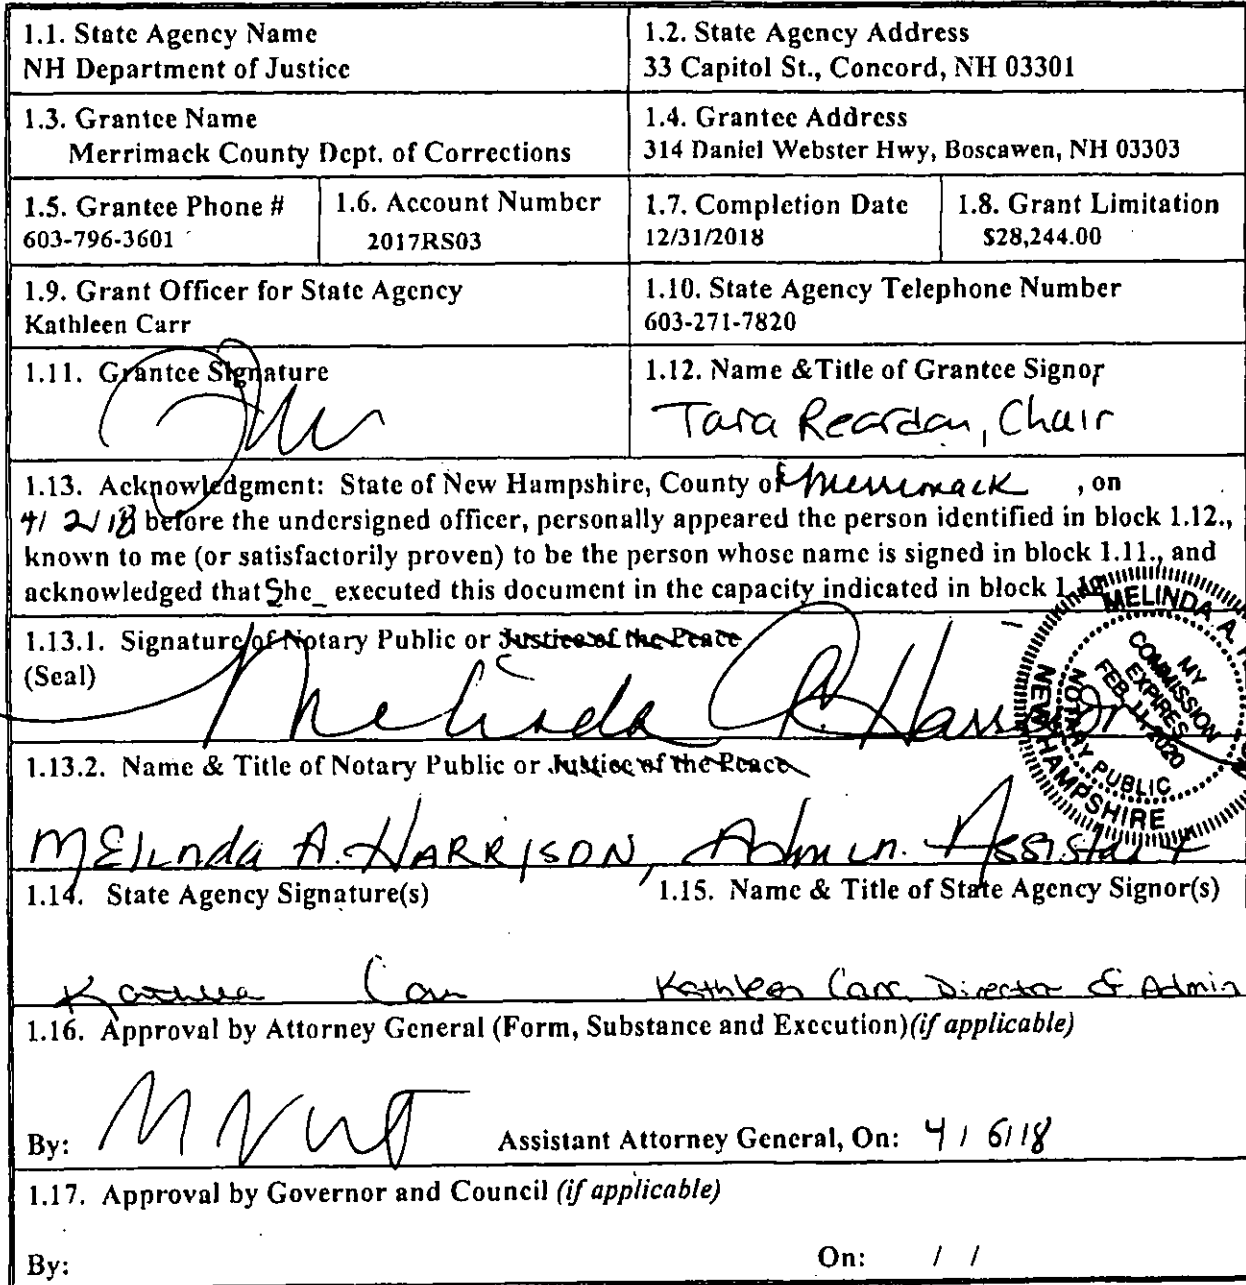 1.1. State Agency Name
NH Department of Justice
1.2. State Agency Address
33 Capitol St., Concord, NH 03301
1.3. Grantee Name
Merrimack County Dept. of Corrections
1.4. Grantee Address
314 Daniel Webster Hwy, Boscawen, NH 03303
1.5. Grantee Phone #
603-796-3601
1.6. Account Number
2017RS03
1.7. Completion Date
12/31/2018
1.8. Grant Limitation
$28,244.00
1.9. Grant Officer for State Agency
Kathleen Carr
1.10. State Agency Telephone Number
603-271-7820
1.11. Grantee Signature
1.12. Name &Title of Grantee Signor
Tara Reardon, Chair
1.13. Acknowledgment: State of New Hampshire, County of Merrimack , on
4/ 2/18 before the undersigned officer, personally appeared the person identified in block 1.12.,
known to me (or satisfactorily proven) to be the person whose name is signed in block 1.11., and
acknowledged that She_ executed this document in the capacity indicated in block
1.13.1. Signature of Notary Public or Justice of the Peace
(Seal)
Melinda A. Harrison
MELINDA A.
MY
COMMISSION
EXPIRES
FEB. 11, 2020
NOTARY PUBLIC
NEW HAMPSHIRE
1.13.2. Name & Title of Notary Public or Justice of the Peace
MElinda A. HARRISON, Admin. Assistant
1.14. State Agency Signature(s)
1.15. Name & Title of State Agency Signor(s)
Kathleen Carr
Kathleen Carr, Director of Admin
1.16. Approval by Attorney General (Form, Substance and Execution)(if applicable)
By:
Assistant Attorney General, On: 4 / 6 / 18
1.17. Approval by Governor and Council (if applicable)
By:
On: / /